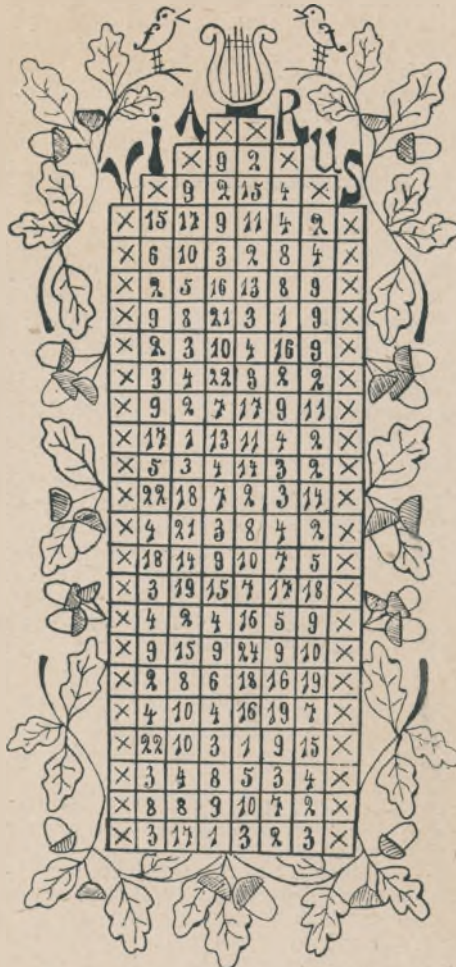 ViARUS
× ×
× 9 2 ×
× 9 2 15 4 ×
× 15 17 9 11 4 2 ×
× 6 10 3 2 8 4 ×
× 2 5 16 13 8 9 ×
× 9 8 21 3 1 9 ×
× 2 3 10 4 16 9 ×
× 3 4 22 3 2 2 ×
× 9 2 7 17 9 11 ×
× 17 1 13 11 4 2 ×
× 5 3 4 17 3 2 ×
× 22 18 7 2 3 14 ×
× 4 21 3 8 4 2 ×
× 18 14 9 10 7 5 ×
× 3 19 15 7 17 18 ×
× 4 2 4 16 5 9 ×
× 9 15 9 24 9 10 ×
× 2 8 6 18 16 19 ×
× 4 10 4 16 19 7 ×
× 22 10 3 1 9 15 ×
× 3 4 8 5 3 4 ×
× 8 8 9 10 7 2 ×
× 3 17 1 3 2 3 ×